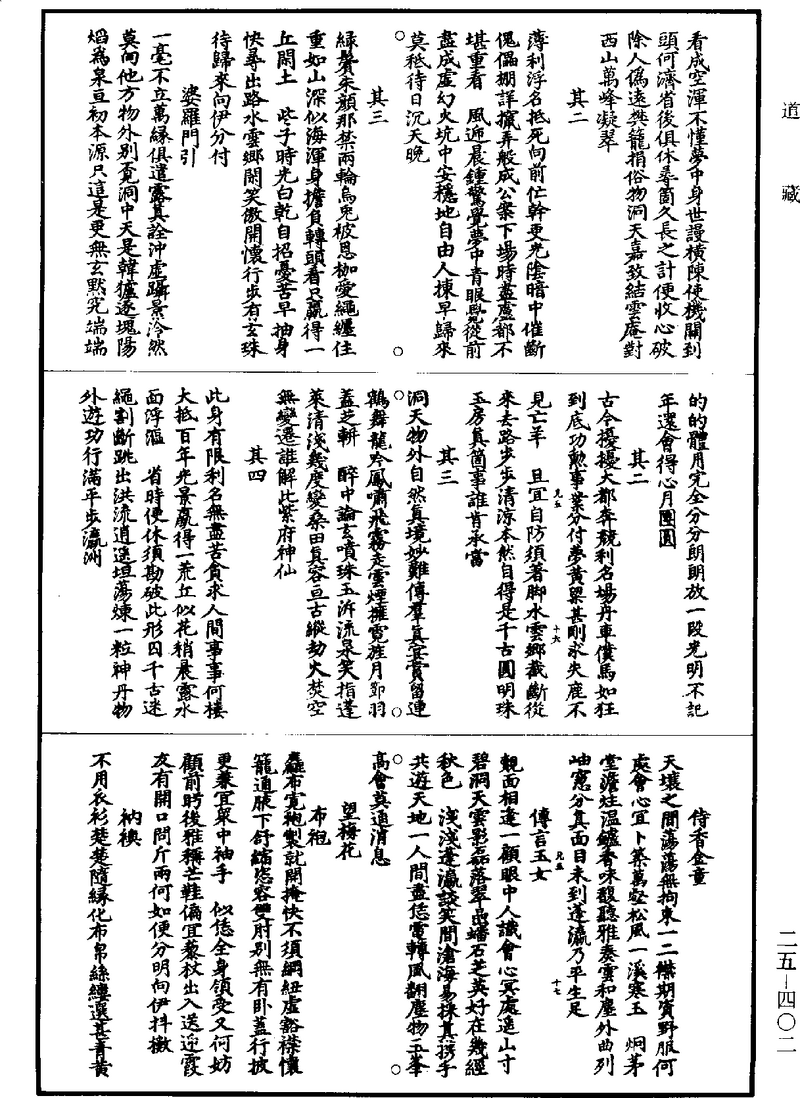 道藏
看成空渾不懂夢中身世謾橫陳使機關到
頭何濟省後俱休尋箇久長之計便收心破
除人偽遠樊籠捐俗物洞天嘉致結雲庵對
西山萬峰凝翠
其二
薄利浮名抵死向前忙幹更光陰暗中催斷
傀儡棚詳擬弄般成公案下場時盡盧都不
堪重看 風迎晨鍾驚覺夢中青眼覺從前
盡成虛幻火坑中安穩地自由人揀早歸來
莫秪待日沉天晚
其三
綠鬢朱顏那禁兩輪烏兔被恩枷愛繩纏住
重如山深似海渾身擔負轉頭看只贏得一
丘閑土 些子時光白乾自招憂苦早抽身
快尋出路水雲鄉閑笑傲開懷行步有玄珠
待歸來向伊分付
婆羅門引
一毫不立萬緣俱遣露真詮沖虛躡景泠然
莫向他方物外別覓洞中天是韓獹逐塊陽
焰為泉亘初本源只這是更無玄默究端端
的的體用完全分分朗朗放一段光明不記
年還會得心月團圓
其二
古今擾擾大都奔競利名場丹車債馬如狂
到底功勳事業分付夢黃粱甚剛求失鹿不
見亡羊 且宜自防須著腳水雲鄉截斷從
來去路步步清涼本然自得是千古圓明珠
玉房真箇事誰肯承當
其三
洞天物外自然真境妙難傳羣真宴賞留連
鶴舞龍吟鳳嘯飛霧走雲煙擁霓旌月節羽
蓋芝軿 醉中論玄噴珠玉泝流泉笑指蓬
萊清淺幾度變桑田真容亘古縱劫火焚空
無變遷誰解比紫府神仙
其四
此身有限利名無盡苦貪求人間事事何樓
大抵百年光景贏得一荒丘似花稍晨露水
面浮漚 省時便休須勘破此形囚千古迷
繩割斷跳出洪流逍遙坦蕩煉一粒神丹物
外遊功行滿平步瀛洲
侍香金童
天壤之間蕩蕩無拘束一二襟期質野服何
處會心宜卜築萬壑松風一溪寒玉 炯茅
堂澹炷溫鑪香味馥聽雅奏雲和塵外曲列
岫窻分真面目未到蓬瀛乃平生足
傳言玉女
覿面相逢一顧眼中人識會心冥處遙山寸
碧洞天雲影磊落翠嵒蟠石芝英好在幾經
秋色 淺淺蓬瀛談笑間滄海易抹真拐手
共遊天地一人間盡恁雷轉風翻塵物三峯
高會莫通消息
望梅花
布袍
麤布寬袍製就開掩快不須綱紐虛豁襟懷
籠通腋下舒縮恣容雙肘別無有臥蓋行披
更兼宜衆中袖手 似恁全身領受又何妨
顧前盻後雅稱芒鞋偏宜藜杖出入送迎霞
友有開口問斤兩何如便分明向伊抖擻
衲襖
不用衣衫楚楚隨緣化布帛絲縷選甚青黃
二五–四〇二